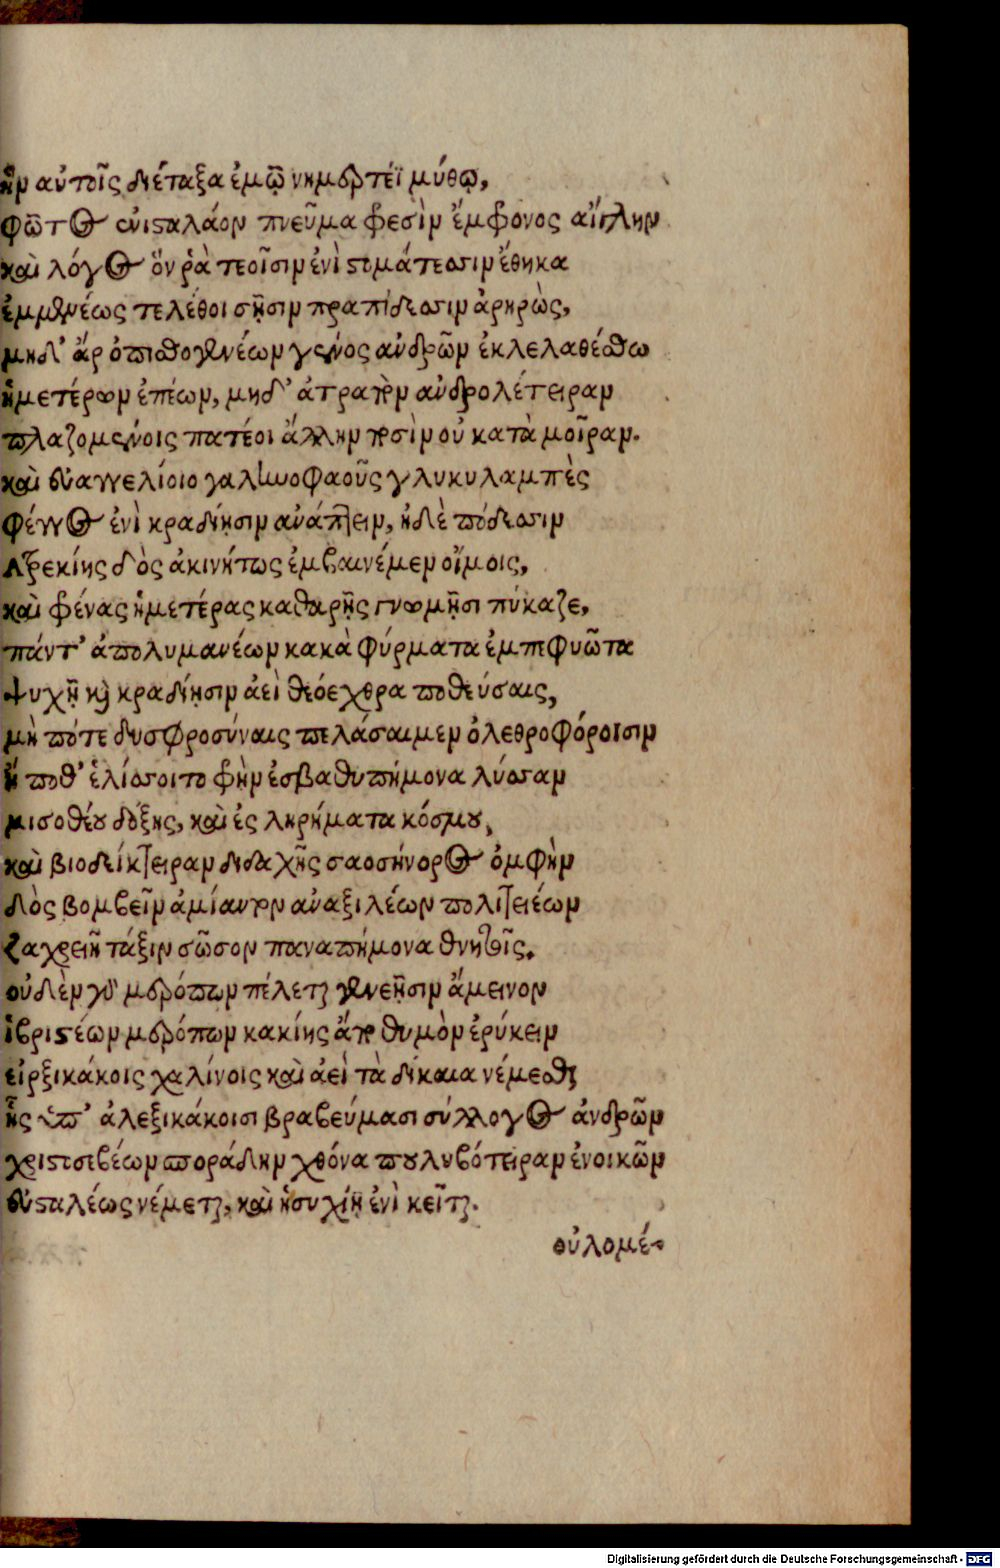 ἣν αὐτοῖς διέταξα ἐμῷ νημερτέϊ μύθῳ,
φῶτος ἐνισαλάον πνεῦμα φεσὶν ἔμφονος αἴγλην
καὶ λόγος ὅν ῥὰ τεοῖσιν ἐνὶ στομάτεσσιν ἔθηκα
ἐμμενέως τελέθοι σῇσιν πραπίδεσσιν ἀρηρὼς,
μηδ' ἄρ ὀπισθογενέων γένος ἀνδρῶν ἐκλελαθέσθω
ἡμετέρων ἐπέων, μηδ' ἀτραπὸν ἀνδρολέτειραν
πλαζομένοις πατέοι ἄλλην ποσὶν οὐ κατὰ μοῖραν.
καὶ εὐαγγελίοιο γαληνοφαοῦς γλυκυλαμπὲς
φέγγος ἐνὶ κραδίῃσιν ἀνάπτειν, ἠδὲ πόδεσσιν
ἀτρεκίης δὸς ἀκινήτως ἐμβαινέμεν οἴμοις,
καὶ φένας ἡμετέρας καθαρῇς γνωμῇσι πύκαζε,
πάντ' ἀπολυμανέων κακὰ φύρματα ἐμπεφυῶτα
ψυχῇ καὶ κραδίῃσιν ἀεὶ θεόεχθρα ποθεύσαις,
μὴ πότε δυσφροσύναις πελάσαιμεν ὀλεθροφόροισιν
ἤ ποθ' ἑλίσσοιτο φὴν ἐσβαθυπήμονα λύσσαν
μισοθέου δόξης, καὶ ἐς ληρήματα κόσμου,
καὶ βιοδείκτειραν διδαχῆς σαοσήνορος ὀμφὴν
δὸς βομβεῖν ἀμίαντον ἀναξιλέων πολιτειέων
ζαχρειῆ τάξιν σῶσον παναπήμονα θνητοῖς.
οὐδὲν γὰρ μερόπων πέλεται γενεῇσιν ἄμεινον
ὑβριστέων μερόπων κακίης ἄπο θυμὸν ἐρύκειν
εἰρξικάκοις χαλίνοις καὶ ἀεὶ τὰ δίκαια νέμεσθαι
ἧς ὑπ' ἀλεξικάκοισι βραβεύμασι σύλλογος ἀνδρῶν
χριστοσεβέων σποράδην χθόνα πουλυβότειραν ἐνοικῶν
εὐσταλέως νέμεται, καὶ ἡσυχίῃ ἐνὶ κεῖται.
οὐλομέ-
Digitalisierung gefördert durch die Deutsche Forschungsgemeinschaft - DFG